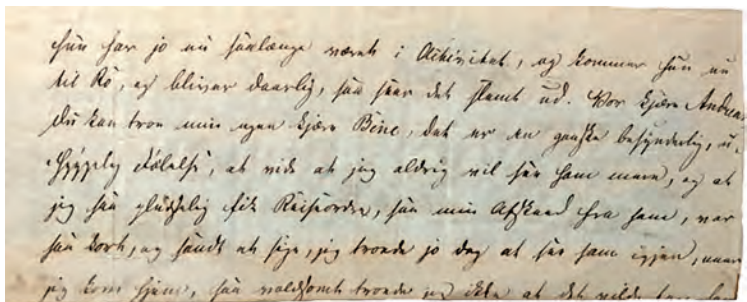 hun har jo nu saalænge været i Aktivitet, og kommer hun nu
til Ro, og bliver daarlig, saa seer det slemt ud. Vor kjære Andreas
Du kan troe min egen kjære Bine, det er en ganske besynderlig, u-
hyggelig Følelse, at vide at jeg aldrig vil see ham mere, og at
jeg saa pludselig fik Reiseordre, saa min Afskeed fra ham, var
saa kort, og sandt at sige, jeg troede jo dog at see ham igjen, naar
jeg kom hjem, saa voldsomt troede jeg ikke at det vilde